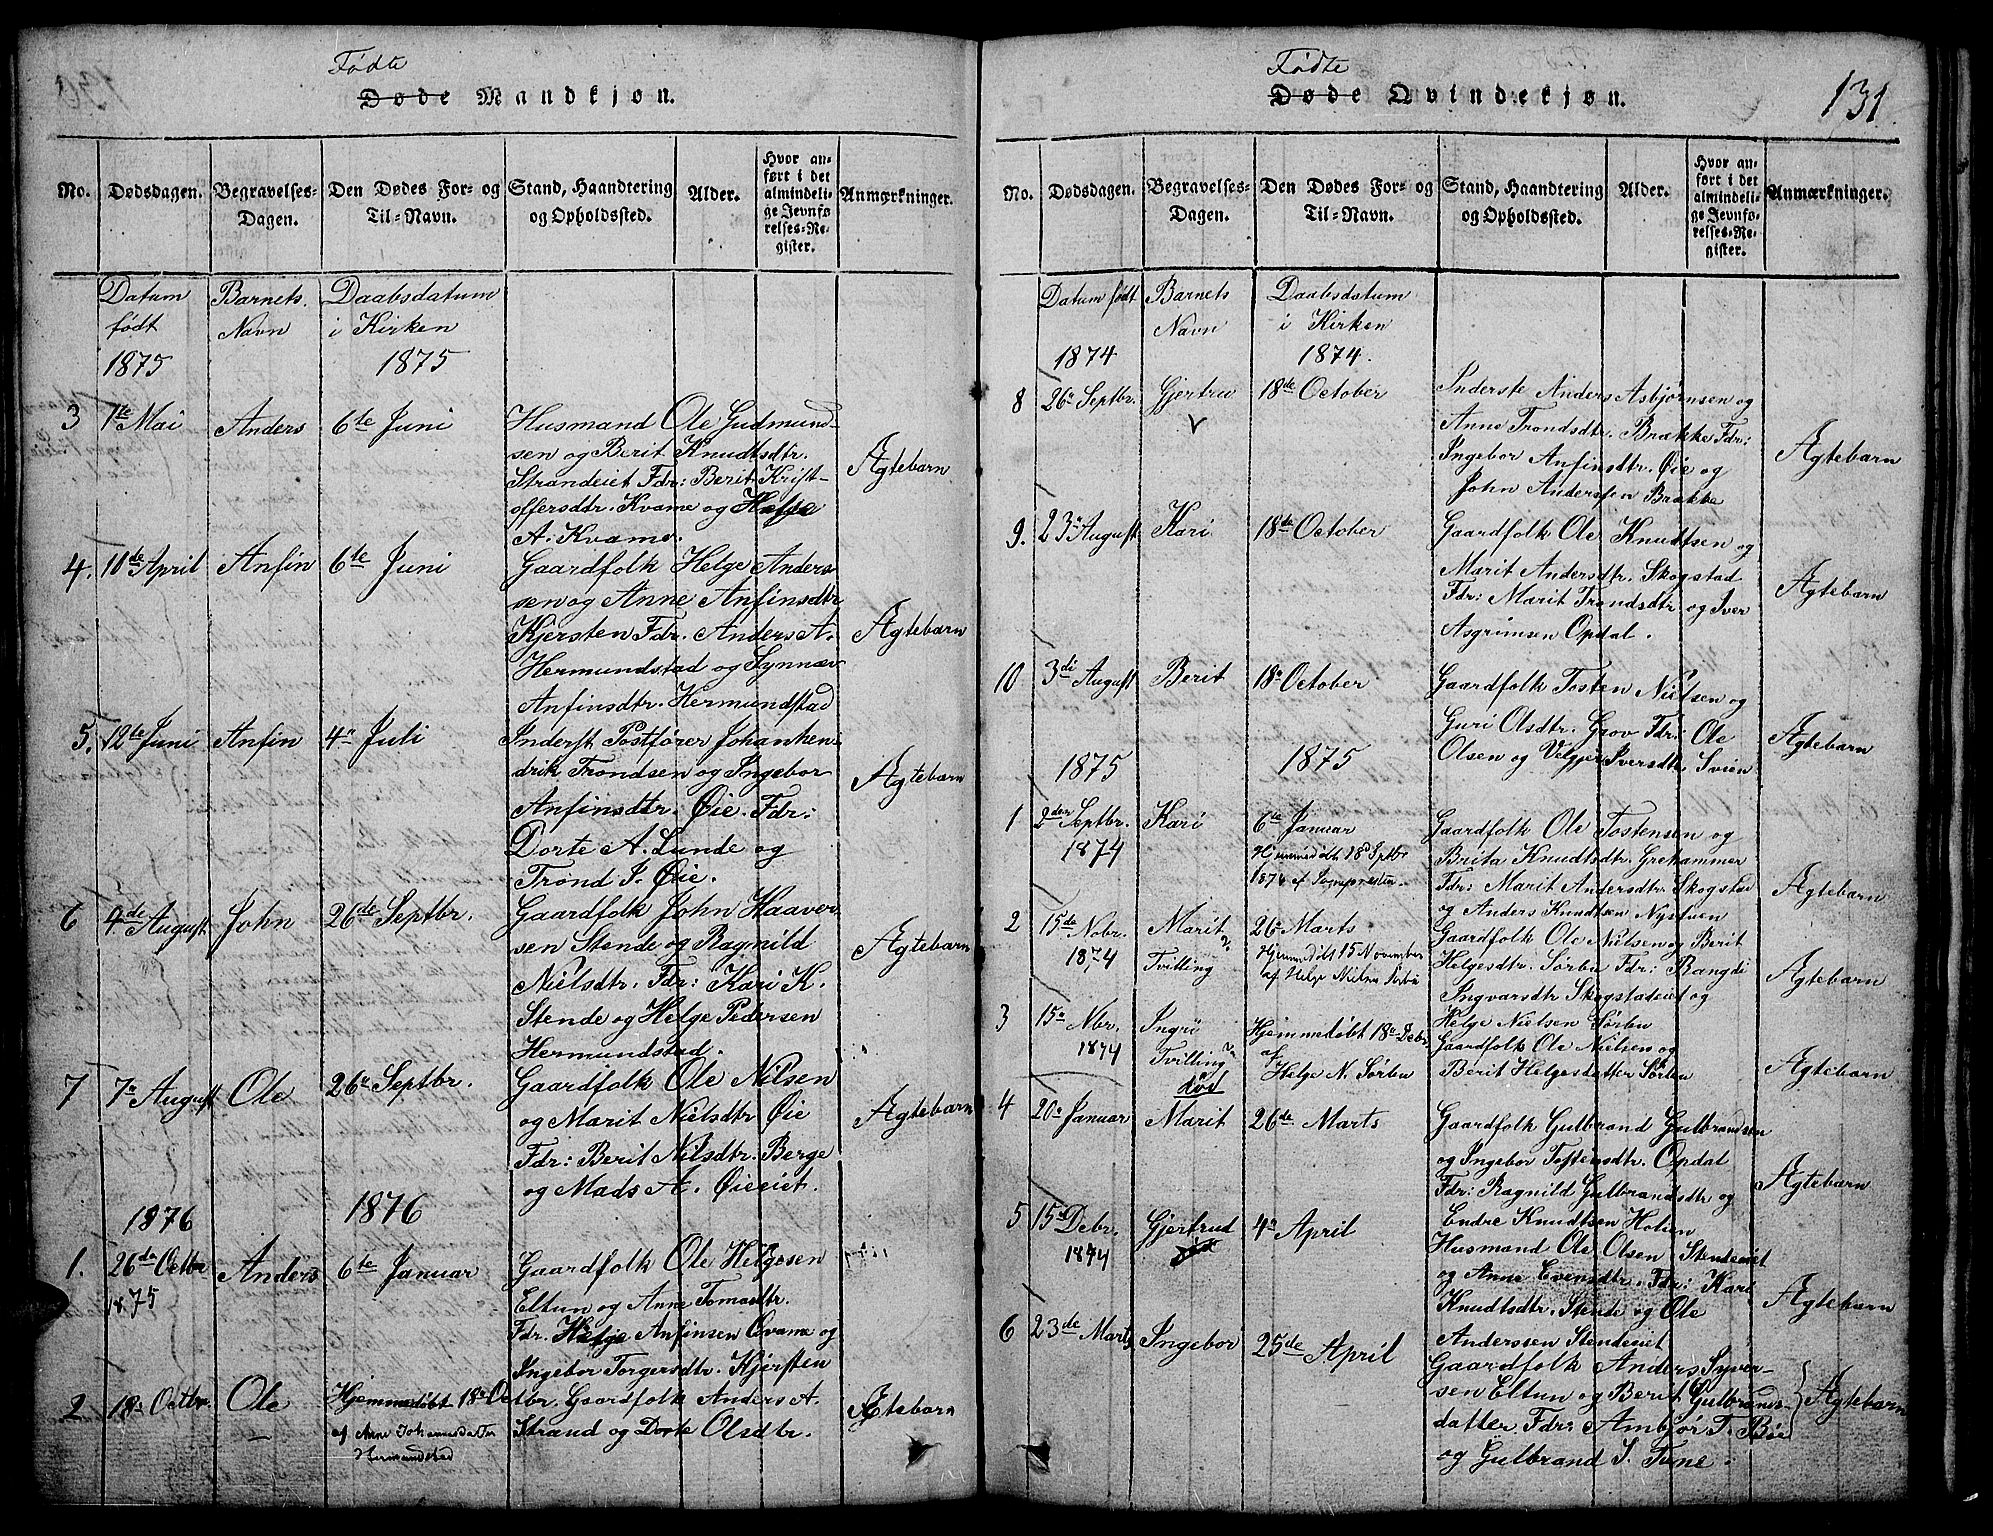 Fødte
Døde Mandkjøn.
No.
Dødsdagen.
Begravelses-
Dagen.
Den Dødes For- og
Til-Navn.
Stand, Haandtering
og Opholdssted.
Alder.
Hvor an-
ført i det
almindeli-
ge Jevnfø-
relses-Re-
gister.
Anmærkninger.
Datum
født
1875
Barnets
Navn
Daabsdatum
i Kirken
1875
3 1te Mai Anders 6te Juni
Husmand Ole Gudmund-
sen og Berit Knudtsdtr.
Strandeiet Fdr: Berit Krist-
offersdtr. Kvame og Helge
A. Kvame.
Ægtebarn
4. 10de April Anfin 6te Juni
Gaardfolk Helge Anders
sen og Anne Anfinsdtr
Kjersten Fdr. Anders A.
Hermundstad og Synnæv
Anfinsdtr. Hermundstad
Ægtebarn
5. 12te Juni Anfin 4de Juli
Inderst Postfører Johanhen
drik Trondsen og Ingebor
Anfinsdtr. Øie. Fdr:
Dorte A. Lunde og
Trond J. Øie.
Ægtebarn
6 4de August John 26de Septbr.
Gaardfolk John Haaver
sen Stende og Ragnild
Nielsdtr. Fdr: Kari K.
Stende og Helge Pedersen
Hermundstad.
Ægtebarn
7 7de August Ole 26de Septbr.
Gaardfolk Ole Nilsen
og Marit Nielsdtr Øie
Fdr: Berit Nilsdtr. Berge
og Mads A. Øieeiet.
Ægtebarn
1876
1876
1. 26de Octbr Anders 6te Januar
1875
Gaardfolk Ole Helgesen
Eltun og Anne Tomasdtr.
Fdr. Helge Anfinsen Qvame og
Ingebor Torgersdtr. Kjersten
2 18de Octbr. Ole Hjemmedøbt 18de Oc
tbr. Gaardfolk Anders A.
af Anne Johannesdatter
Hermundstad
Strand og Dorte Olsdtr.
Ægtebarn
Fødte
Døde Qvindekjøn.
131
No.
Dødsdagen.
Begravelses-
Dagen.
Den Dødes For- og
Til-Navn.
Stand, Haandtering
og Opholdssted.
Alder.
Hvor an-
ført i det
almindeli-
ge Jevnfø-
relses-Re-
gister.
Anmærkninger.
Datum født
1874
Barnets
Navn
Daabsdatum
i Kirken
1874.
8 26de Septbr. Gjertru 18de October
Inderste Anders Asbjørnsen og
Anne Trondsdtr. Brække Fdr:
Ingebor Anfinsdtr. Øie og
John Anderssen Brække
Ægtebarn
9. 23de August Kari 18de October
Gaardfolk Ole Knudtsen og
Marit Andersdtr. Skogstad
Fdr: Marit Trondsdtr og Iver
Asgrimsen Opdal.
Ægtebarn
10 3di August Berit 18de October
Gaardfolk Tosten Nielsen og
Guri Olsdtr. Grov Fdr: Ole
Olsen og Velgjer Iversdtr. Svien
Ægtebarn
1875
1875
1 2den Septbr. Kari 6te Januar
1874
Hjemmedøbt 18de Septbr
1874 af Sognpresten.
Gaardfolk Ole Tostensen og
Brita Knudtsdtr. Grehammer
Fdr: Marit Andersdtr. Skogstad
og Anders Knudtsen Nystuen
Ægtebarn
2 15de Nobr. Marit 26de Marts
1874
Tvilling
Hjemmedøbt 15 November
af Helge Nielsen Sørbu
Gaardfolk Ole Nielsen og Berit
Helgesdtr. Sørbu Fdr: Rangdi
Ingvarsdtr Skogstadeiet og
Helge Nielsen Sørbu
Ægtebarn
3 15de Nbr. Ingri Hjemmedøbt 18de Debr.
1874
Tvilling
død
af
Helge N. Sørbu
Gaardfolk Ole Nielsen og
Berit Helgesdatter Sørbu
Ægtebarn
4 20de Januar Marit 26de Marts
Gaardfolk Gulbrand Gulbrandsen
og Ingebor Tostensdtr. Opdal
Fdr: Ragnild Gulbrandsdtr og
Endre Knudtsen Holien
Ægtebarn
5 15de Debr. Gjertrud 4de April
1874
Husmand Ole Olsen Stendeeiet
og Anne Evensdtr. Fdr: Kari
Knudtsdtr. Stende og Ole
Anderssen Stendeeiet
Ægtebarn
6 23de Marts Ingebor 25de April
Gaardfolk Anders Syver-
sen Eltun og Berit Gulbrands-
datter Fdr: Ambjør T. Bøe
og Gulbrand J. Tune.
Ægtebarn